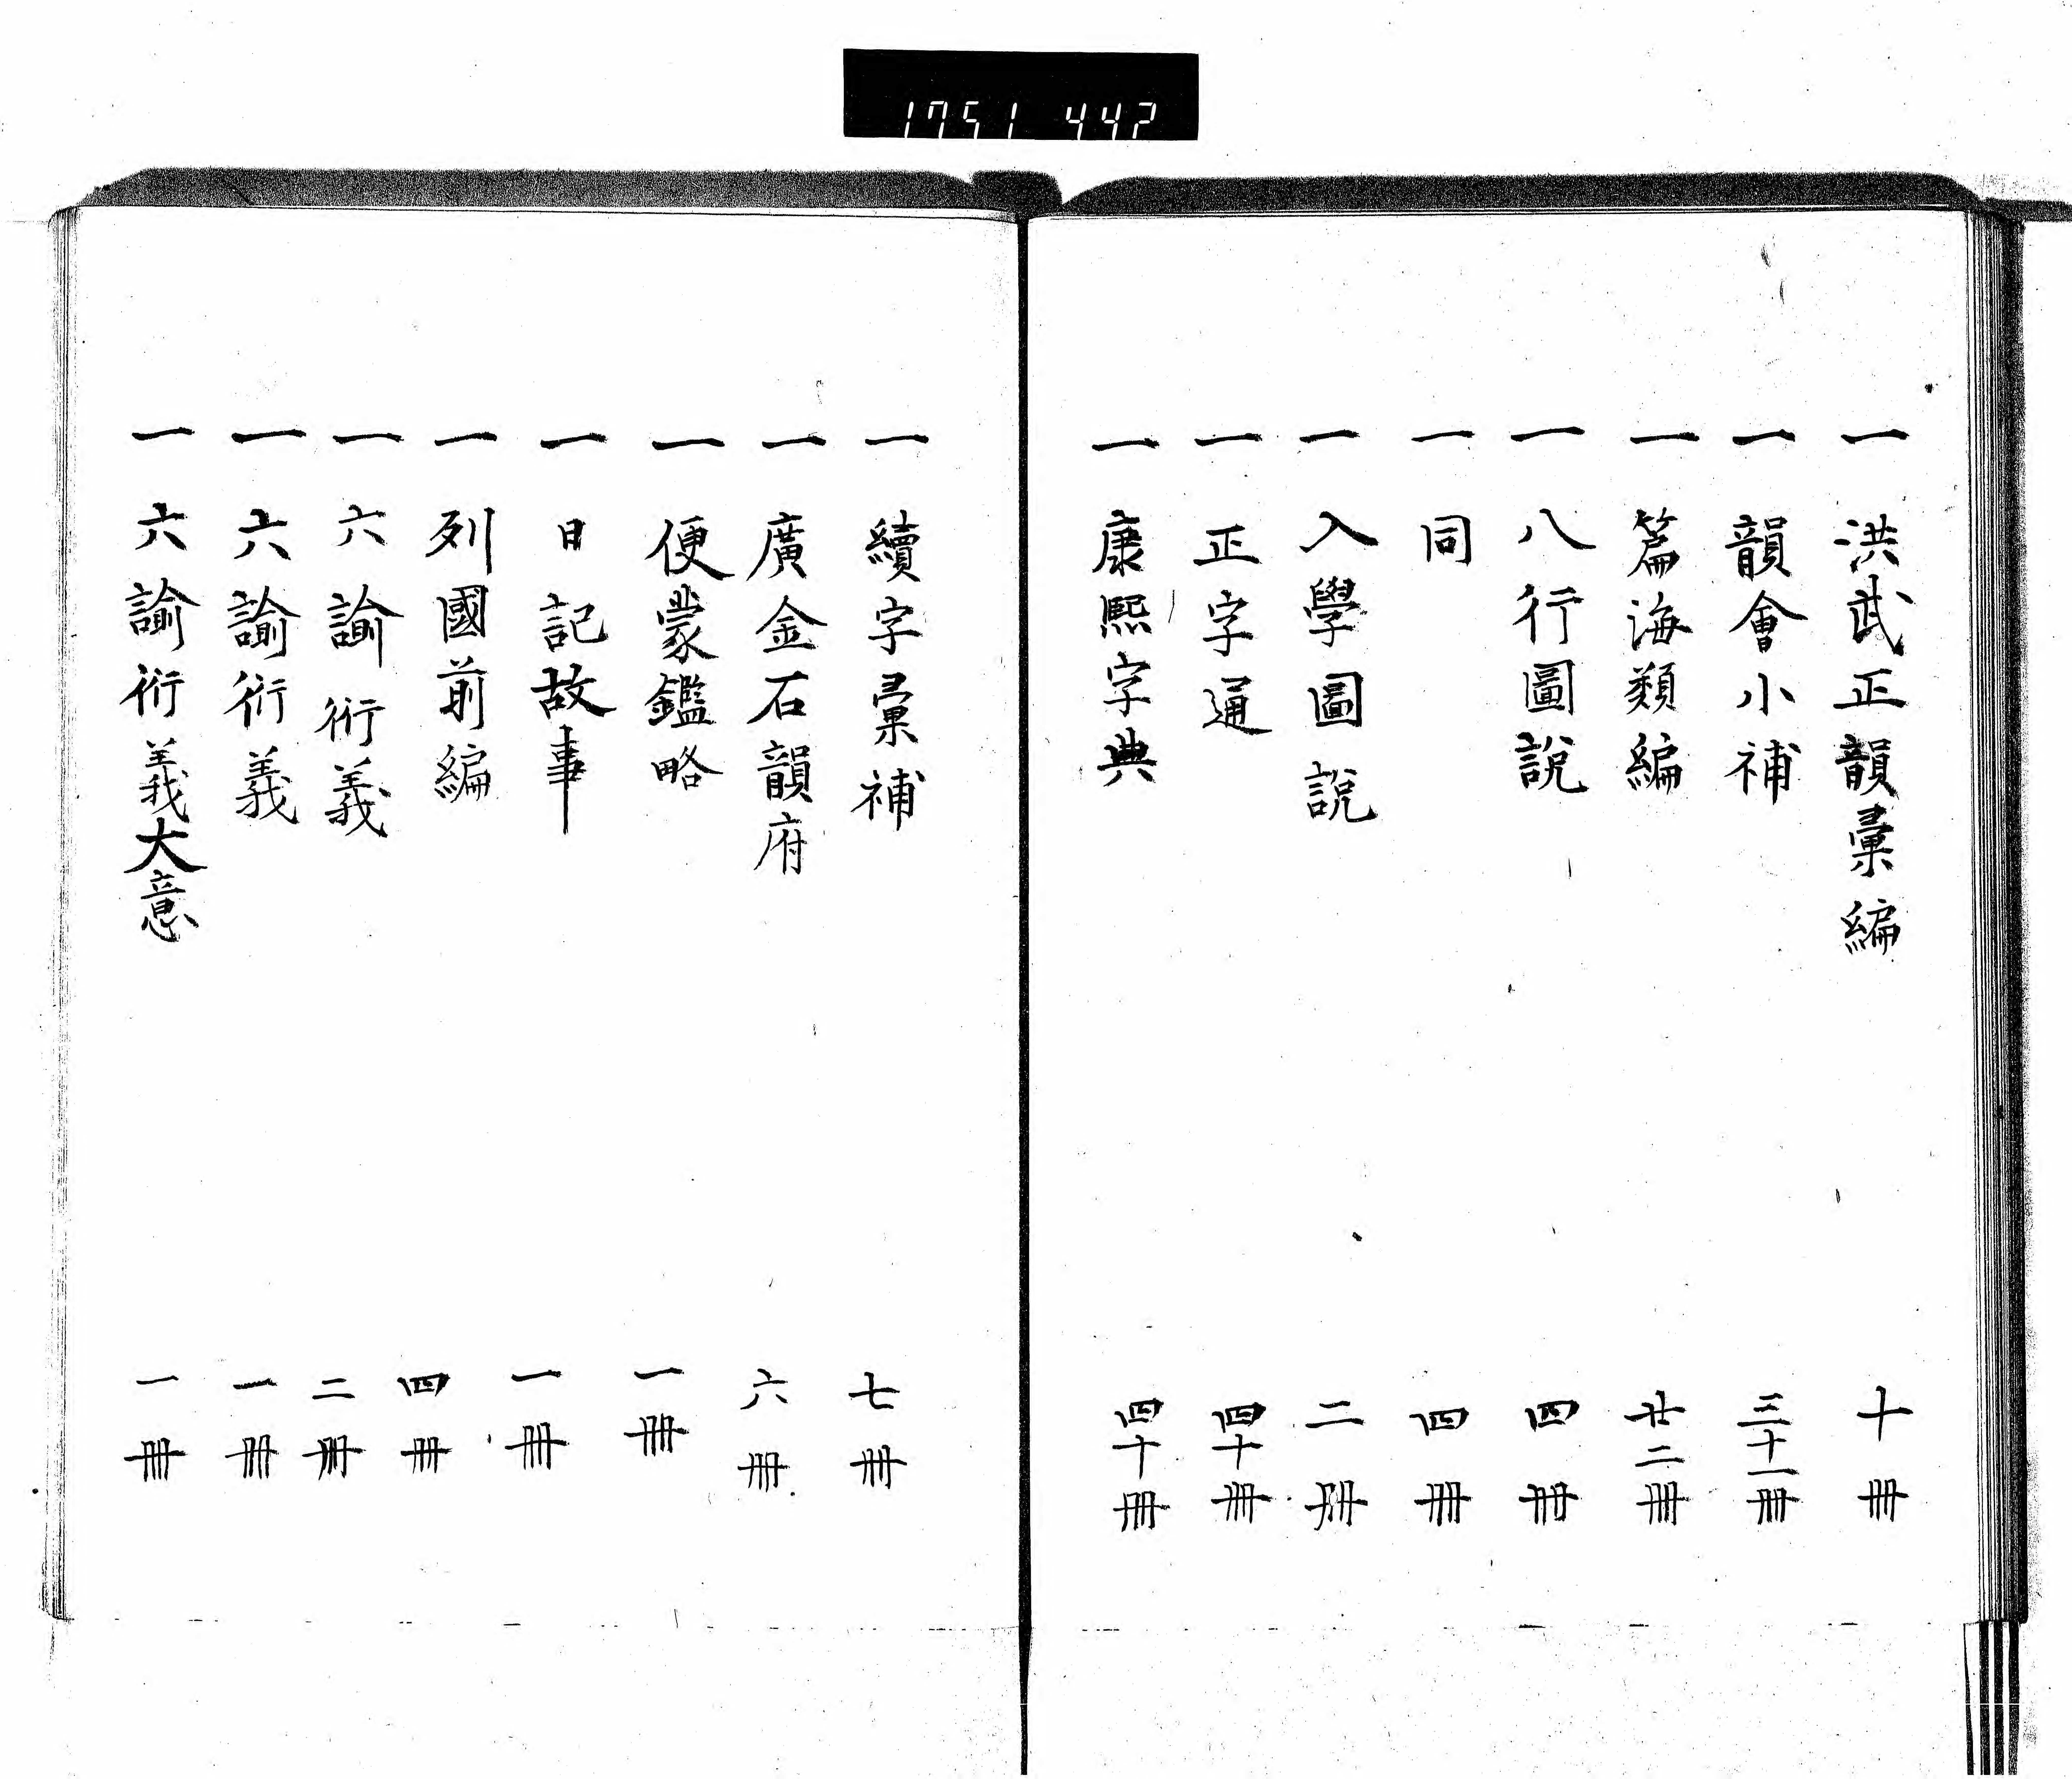 1751 442
一 洪武正韻彙編 十冊
一 韻會小補 三十一冊
一 篇海類編 廿二冊
一 八行圖說 四冊
一 同 四冊
一 入學圖說 二冊
一 正字通 四十冊
一 康熙字典 四十冊
一 續字彙補 七冊
一 廣金石韻府 六冊
一 便蒙鑑略 一冊
一 日記故事 一冊
一 列國前編 四冊
一 六諭衍義 二冊
一 六諭衍義 一冊
一 六諭衍義大意 一冊